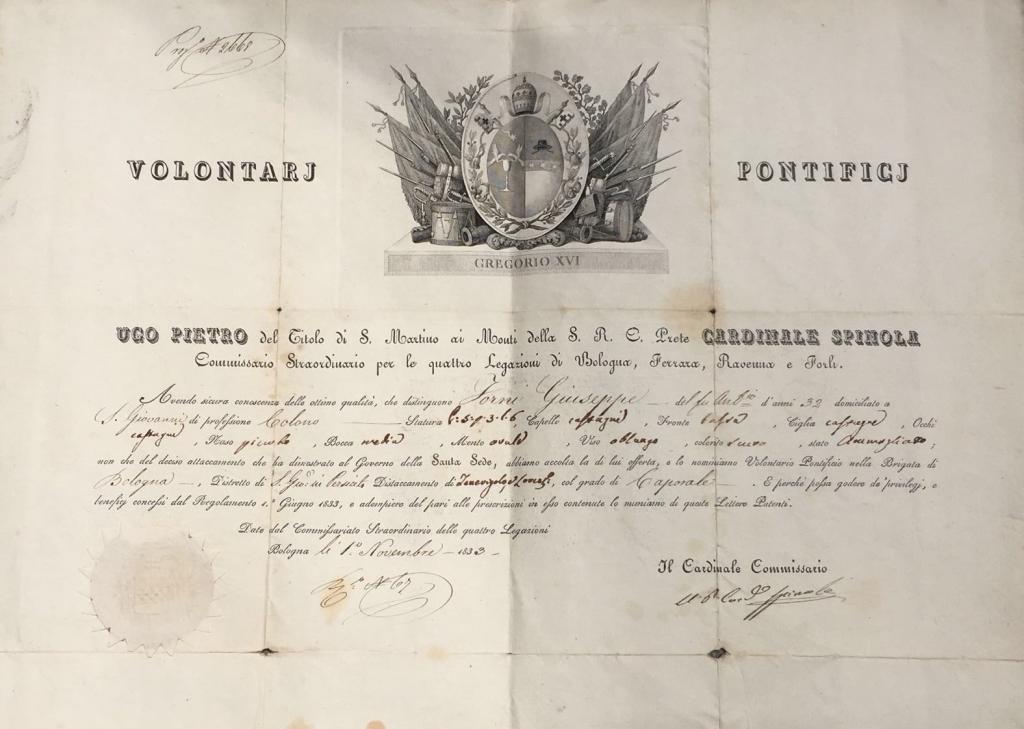 VOLONTARJ PONTIFICJ
GREGORIO XVI
UGO PIETRO del Titolo di S. Martino ai Monti della S. R. C. Prete CARDINALE SPINOLA
Commissario Straordinario per le quattro Legazioni di Bologna, Ferrara, Ravenna e Forlì.
Avendo sicura conoscenza delle ottime qualità, che distinguono Forni Giuseppe del fu d'anni 32 domiciliato a
S. Giovanni di professione Colono Statura Capelle castagne, Fronte bassa, Ciglia castagne, Occhi
castagni, Naso piccolo, Bocca media, Mento ovale, Viso oblungo, colorito scuro, stato Ammogliato;
non che del deciso attaccamento che ha dimostrato al Governo della Santa Sede, abbiamo accolta la di lui offerta, e lo nominiamo Volontario Pontificio nella Brigata di
Bologna, Distretto di S. Distaccamento di, col grado di Caporale. E perchè possa godere de' privilegj, e
beneficj concessi dal Regolamento 1.° Giugno 1833, e adempiere del pari alle prescrizioni in esso contenute lo muniamo di queste Lettere Patenti.
Date del Commissariato Straordinario delle quattro Legazioni
Bologna li 1.° Novembre 1833
Il Cardinale Commissario
Spinola